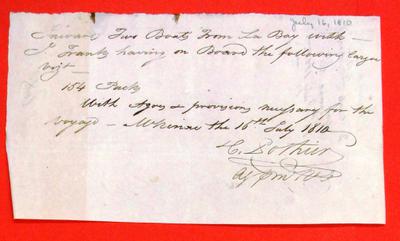 July 16, 1810
Two Boats From La Bay with
J. Franks having on Board the following Cargoe
vizt
154 Packs
With Agres & provisions necessary for the
voyage – Mkinac the 16th July 1810
T. Pothier